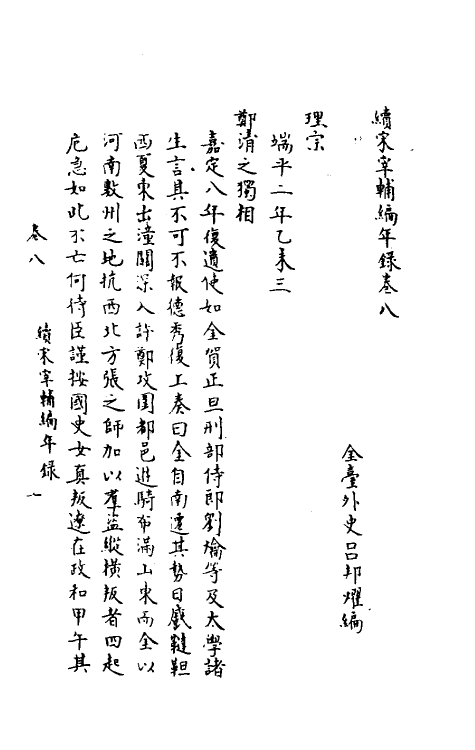 續宋宰輔編年錄卷八
金臺外史呂邦燿編
理宗
端平二年乙未三
鄭清之獨相
嘉定八年復遣使如金賀正旦刑部侍郎劉爚等及太學諸
生言其不可不報德秀復上奏曰金自南遷其勢日蹙韃靼
西夏東出潼關深入許鄭攻圍都邑遊騎布滿山東而金以
河南數州之地抗西北方張之師加以羣盜縱橫叛者四起
危急如此不亡何待臣謹按國史女真叛遼在政和甲午其
卷八
續宋宰輔編年錄
一